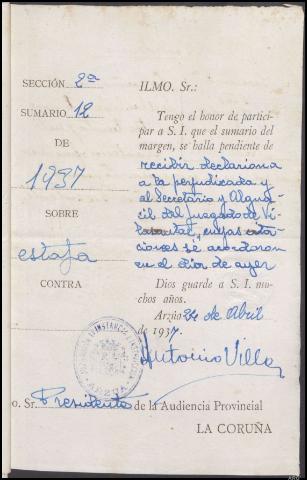 SECCIÓN 2ª
SUMARIO 12
DE
1937
SOBRE
estafa
CONTRA
ILMO. Sr.:
Tengo el honor de partici-
par a S. I. que el sumario del
margen, se halla pendiente de
recibir declariona
a la perjudicada y
al Secretario y Algua-
cil del Juzgado de Vi-
cuyas
ciones se acordaron
en el dia de ayer
Dios guarde a S. I. mu-
chos años.
Arzúa 24 de Abril
de 1937.
Antonio Villa
o. Sr. Presidente de la Audiencia Provincial
LA CORUÑA